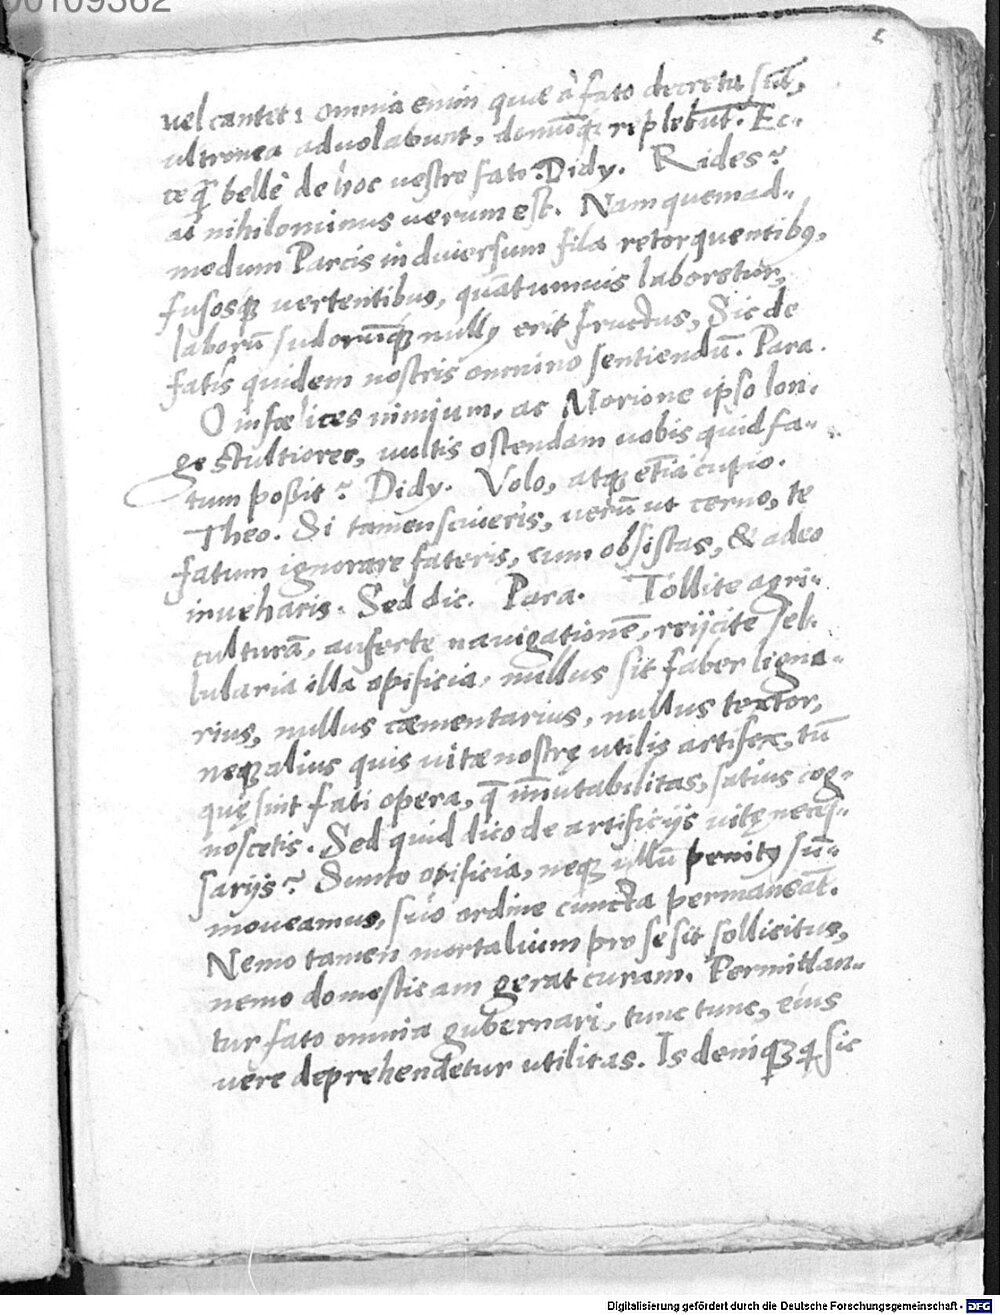 00109362
vel cantet: omnia enim quæ à fato decreta sūt,
ultronea advolabunt, domūq; replebūt. Ec-
ce q̄ bellè de hoc vestro fato. Didy. Rides?
at nihilominus verum est. Nam quemad-
modum Parcis in diversum fila retorquentibꝰ,
fusosq; vertentibus, quātumvis laboretur,
laborū sudorumq; nullꝰ erit fructus, Sic de
fatis quidem nostris omnino sentiendū. Para.
O infœlices nimium, ac Morione ipso lon-
ge stultiores, vultis ostendam vobis quid fa-
tum poßit? Didy. Volo, atq; etiā cupio.
Theo. Si tamen sciveris, verū ut cerno, te
fatum ignorare fateris, cum obsistas, & adeo
inveharis. Sed dic. Para. Tollite agri-
culturā, auferte navigationē, reijcite sel-
lularia illa opificia, nullus sit faber ligna-
rius, nullus cæmentarius, nullus textor,
neq; alius quis vitæ nostrę utilis artifex, tū
quę sint fati opera, q̄ immutabilitas, satius cog-
noscetis. Sed quid dico de artificijs vitę necęs-
sarijs? Sunto opificia, neq; illū penitꝰ sum-
moveamus, suo ordine cuncta permaneāt.
Nemo tamen mortalium pro se sit sollicitus,
nemo domesticam gerat curam. Permittan-
tur fato omnia gubernari, tunc tunc, eius
vere deprehendetur utilitas. Is deniq; q sic
Digitalisierung gefördert durch die Deutsche Forschungsgemeinschaft - DFG